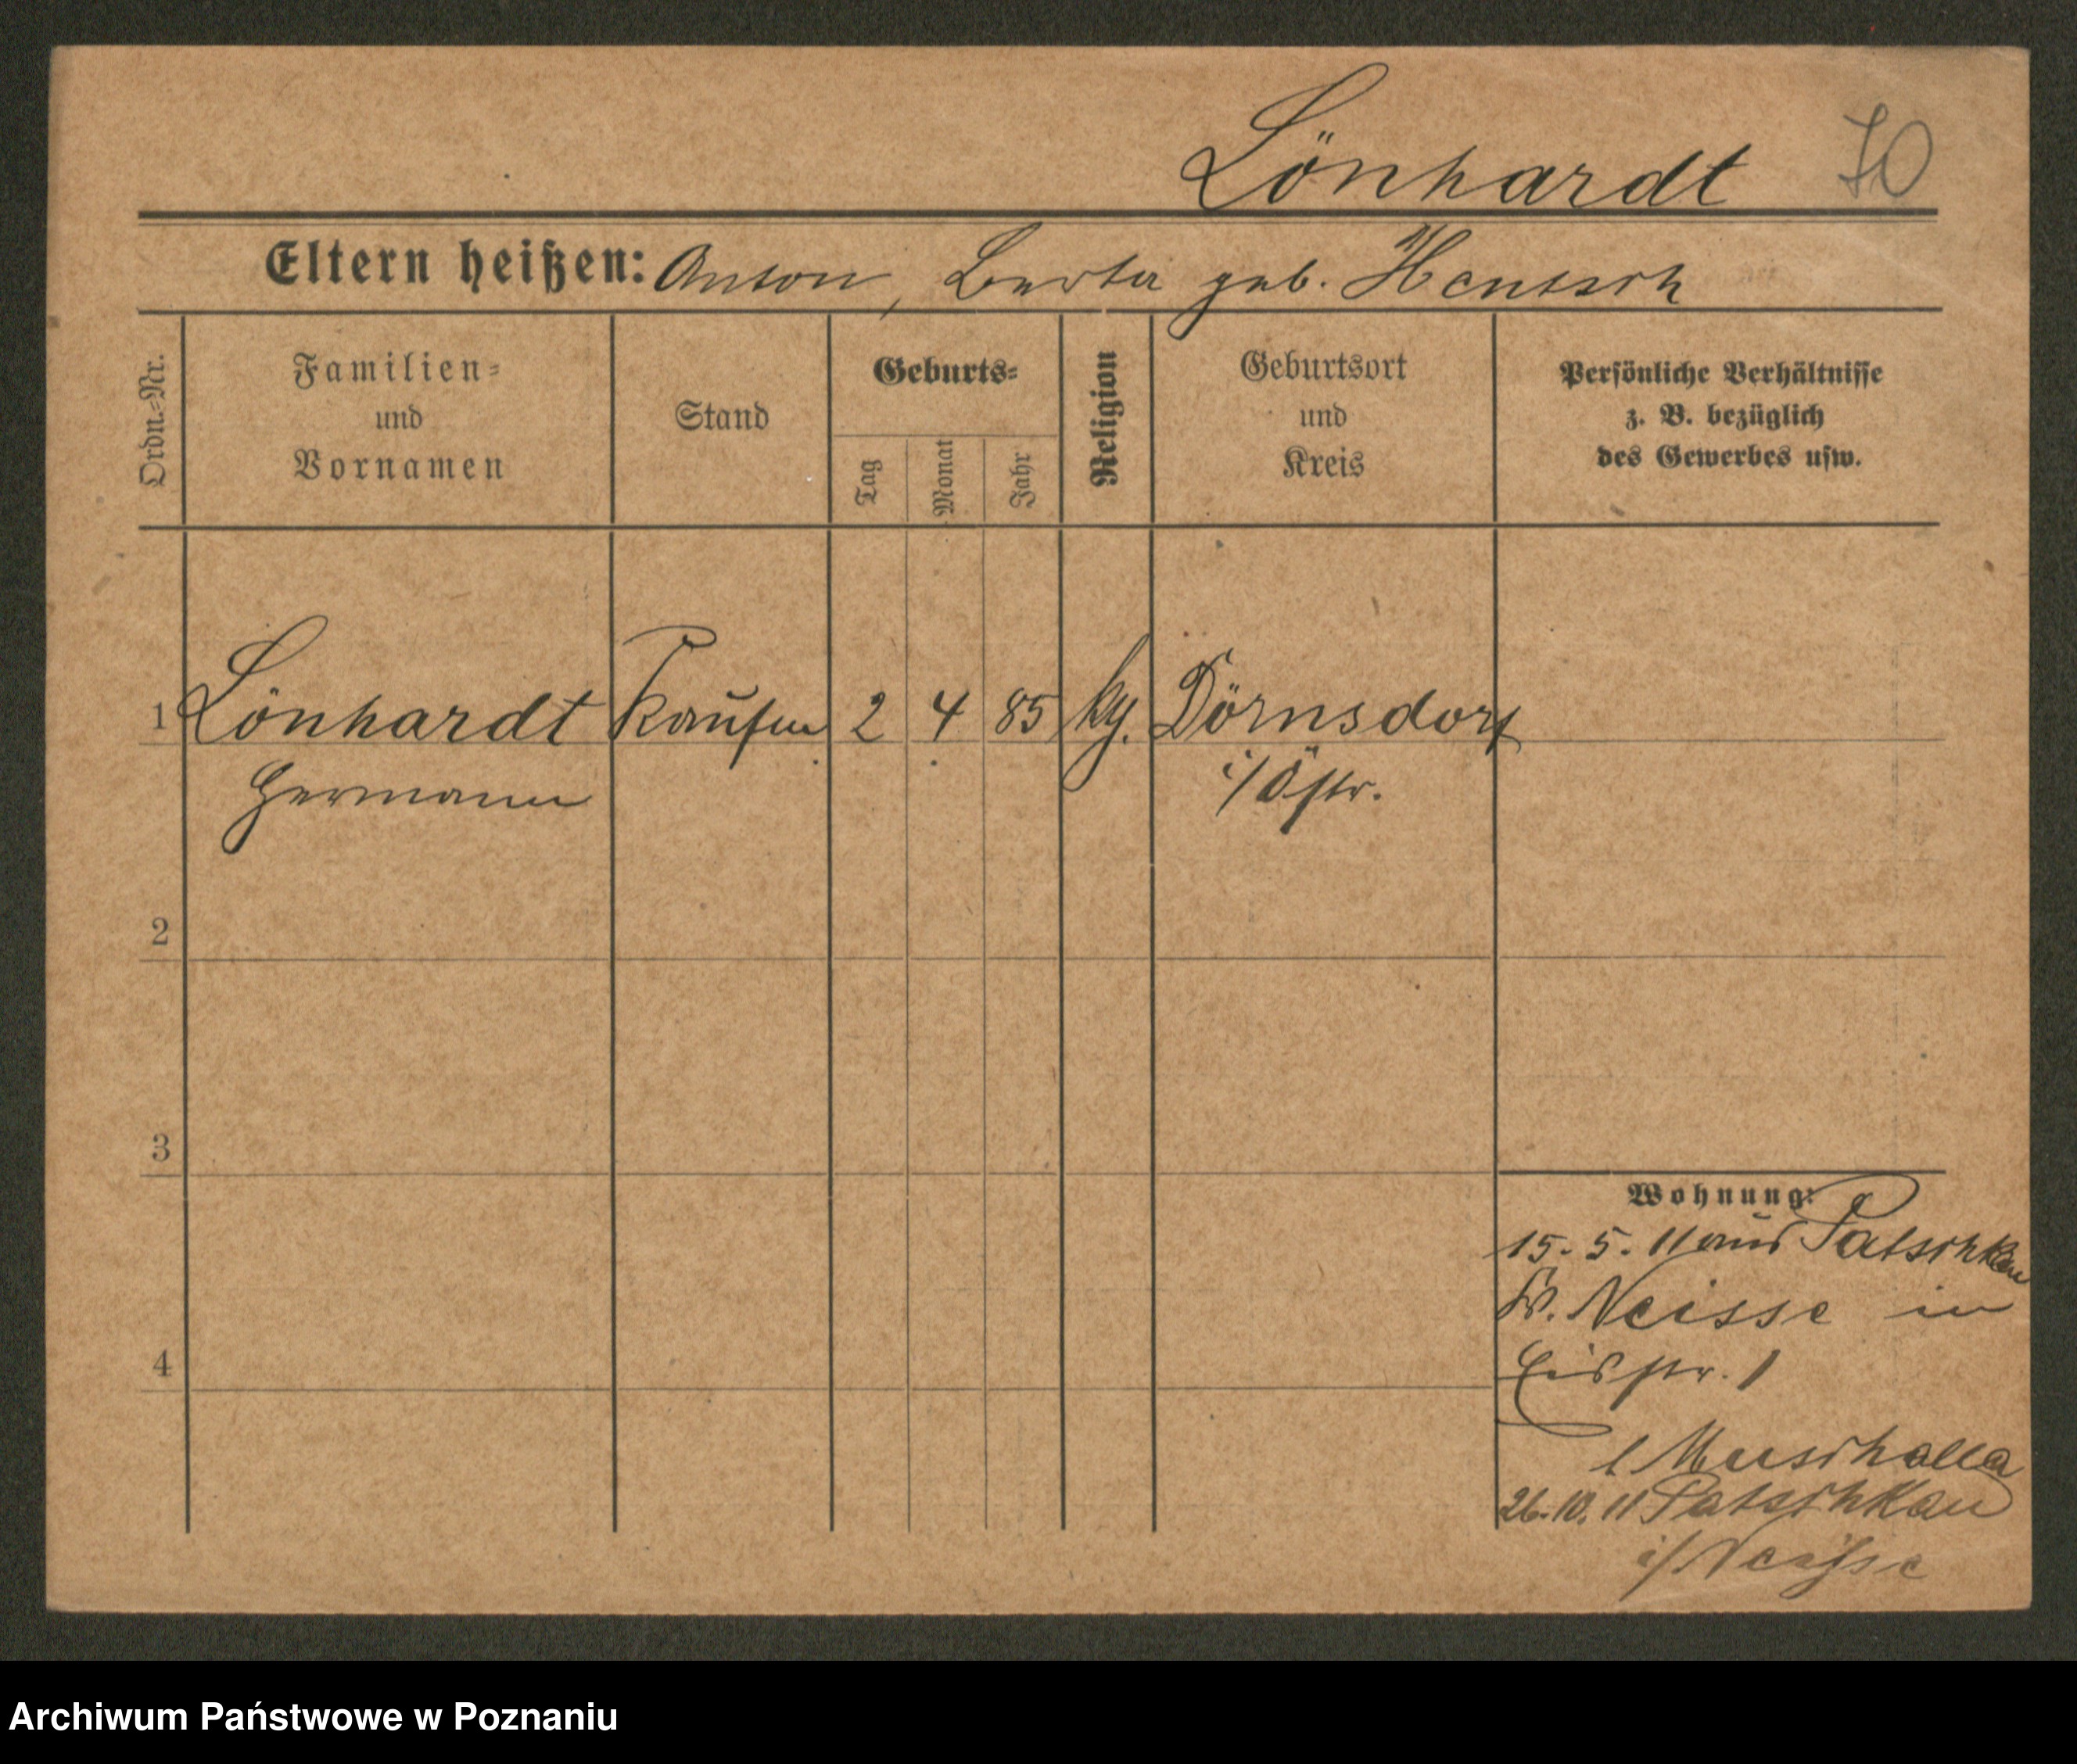 Lönhardt 70
Eltern heißen: Anton, Berta geb. Hentsch
Ordn.-Nr.
Familien-
und
Vornamen
Stand
Geburts-
Tag
Monat
Jahr
Religion
Geburtsort
und
Kreis
Persönliche Verhältnisse
z. B. bezüglich
des Gewerbes usw.
1 Lönhardt Kaufm 2 4 85 kg. Dörnsdorf
Hermann i/Östr.
2
3
4
Wohnung:
15. 5. 11 aus Patschkau
Kr. Neisse in
Eisstr. 1
26. 10. 11 Patschkau
i/Neisse
Archiwum Państwowe w Poznaniu